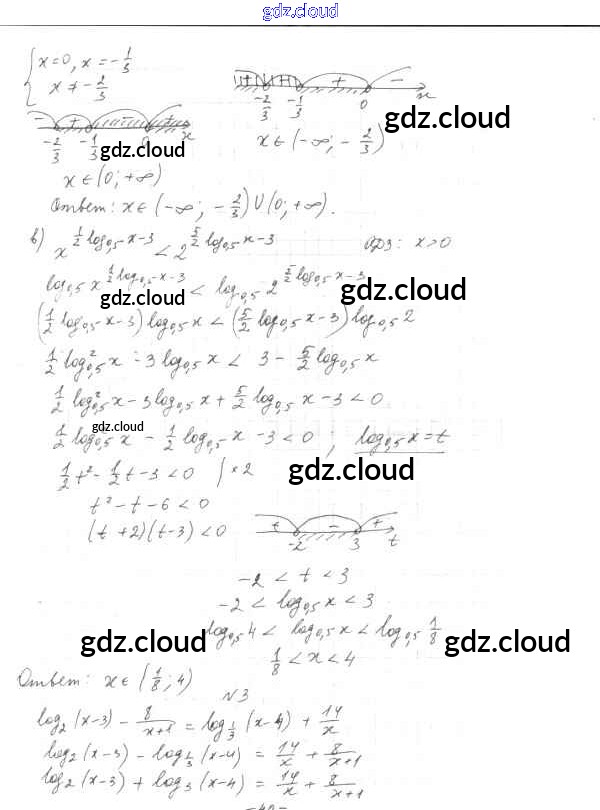 gdz.cloud
x=0, x=-1/3
x≠-2/3
+ -
-2/3 -1/3 0 x
gdz.cloud
- +
-2/3 -1/3 0 x
gdz.cloud
x∈(-∞; -2/3)
x∈(0; +∞)
Ответ: x∈(-∞; -2/3)∪(0; +∞).
в) x^(1/2 log₀,₅x-3) < 2^(5/2 log₀,₅x-3) ОДЗ: x>0
log₀,₅ x^(1/2 log₀,₅x-3) < log₀,₅ 2^(5/2 log₀,₅x-3)
gdz.cloud gdz.cloud
(1/2 log₀,₅x-3) log₀,₅x < (5/2 log₀,₅x-3) log₀,₅2
1/2 log²₀,₅x - 3log₀,₅x < 3 - 5/2 log₀,₅x
1/2 log²₀,₅x - 3log₀,₅x + 5/2 log₀,₅x - 3 < 0
gdz.cloud
1/2 log²₀,₅x - 1/2 log₀,₅x - 3 < 0 ; log₀,₅x = t
1/2 t² - 1/2 t - 3 < 0 | ×2
gdz.cloud
t² - t - 6 < 0
(t+2)(t-3) < 0
+ - +
-2 3 t
-2 < t < 3
-2 < log₀,₅x < 3
log₀,₅4 < log₀,₅x < log₀,₅ 1/8
gdz.cloud gdz.cloud
1/8 < x < 4
Ответ: x∈(1/8; 4)
N3
log₂(x-3) - 8/(x+1) = log_(1/3)(x-4) + 14/x
log₂(x-3) - log_(1/3)(x-4) = 14/x + 8/(x+1)
log₂(x-3) + log₃(x-4) = 14/x + 8/(x+1)